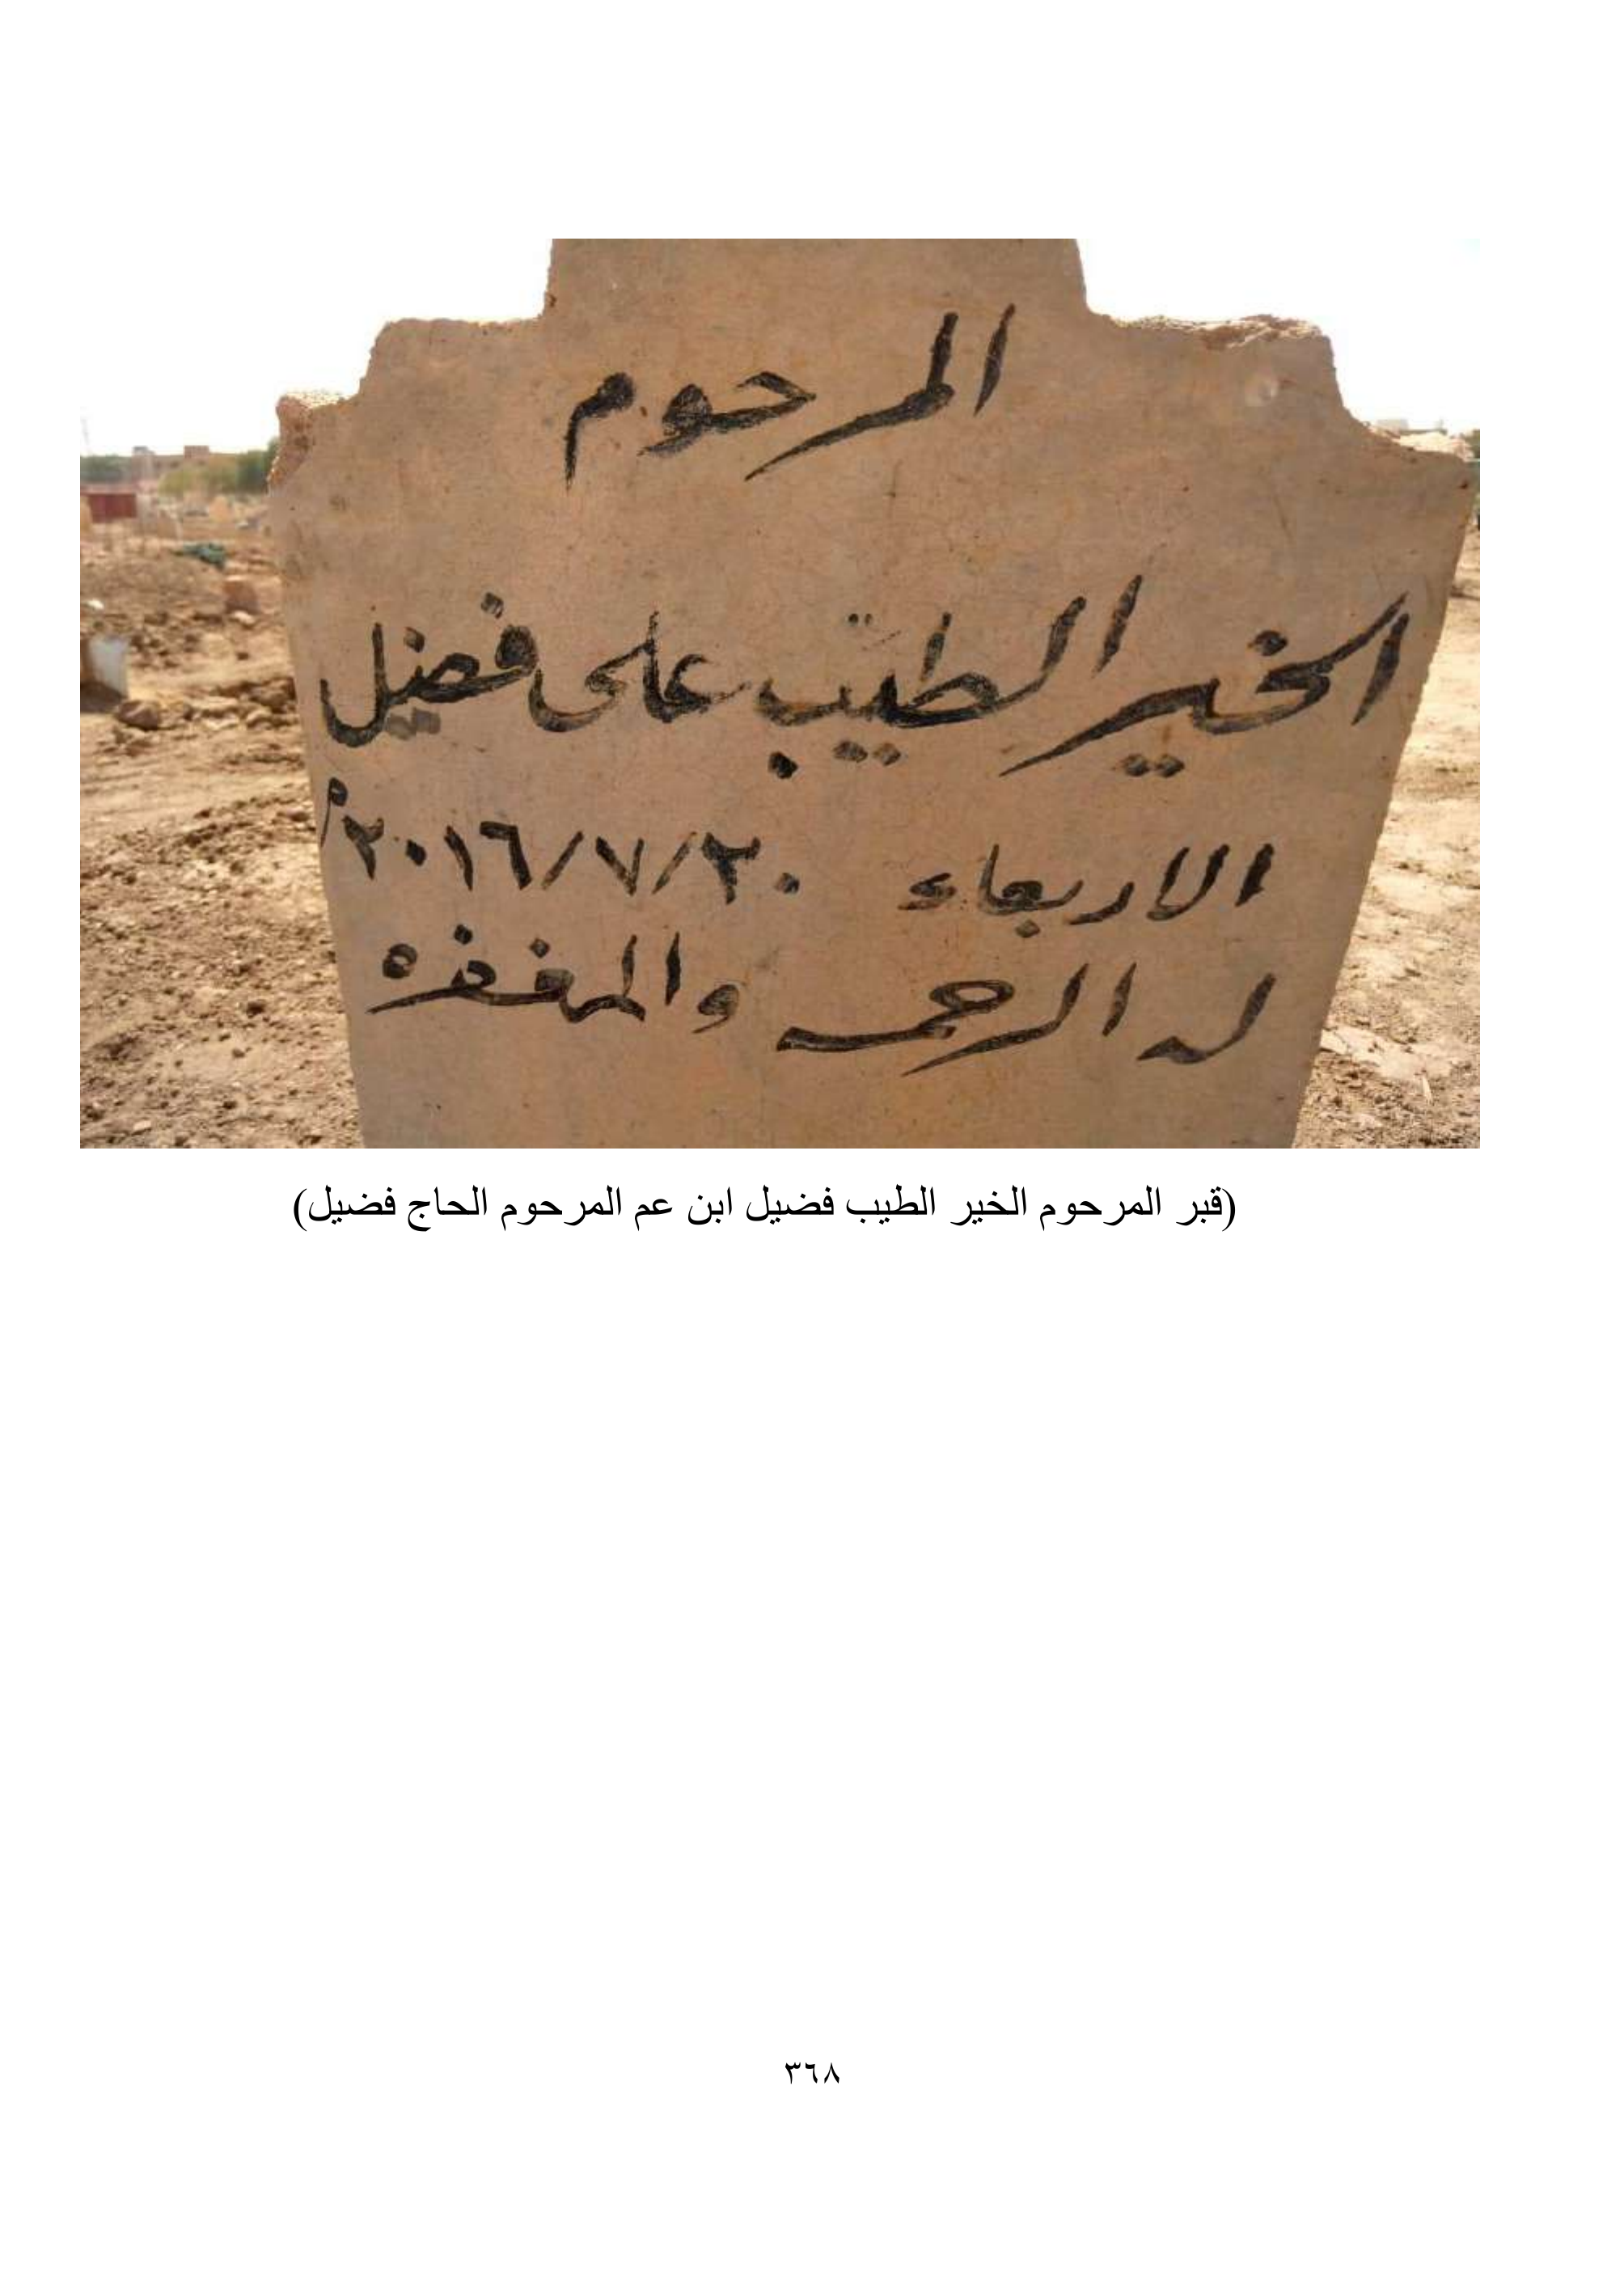 المرحوم
الخير الطيب على فضيل
الاربعاء ٢٠/٧/٢٠١٦م
له الرحمه والمغفره
(قبر المرحوم الخير الطيب فضيل ابن عم المرحوم الحاج فضيل)
٣٦٨